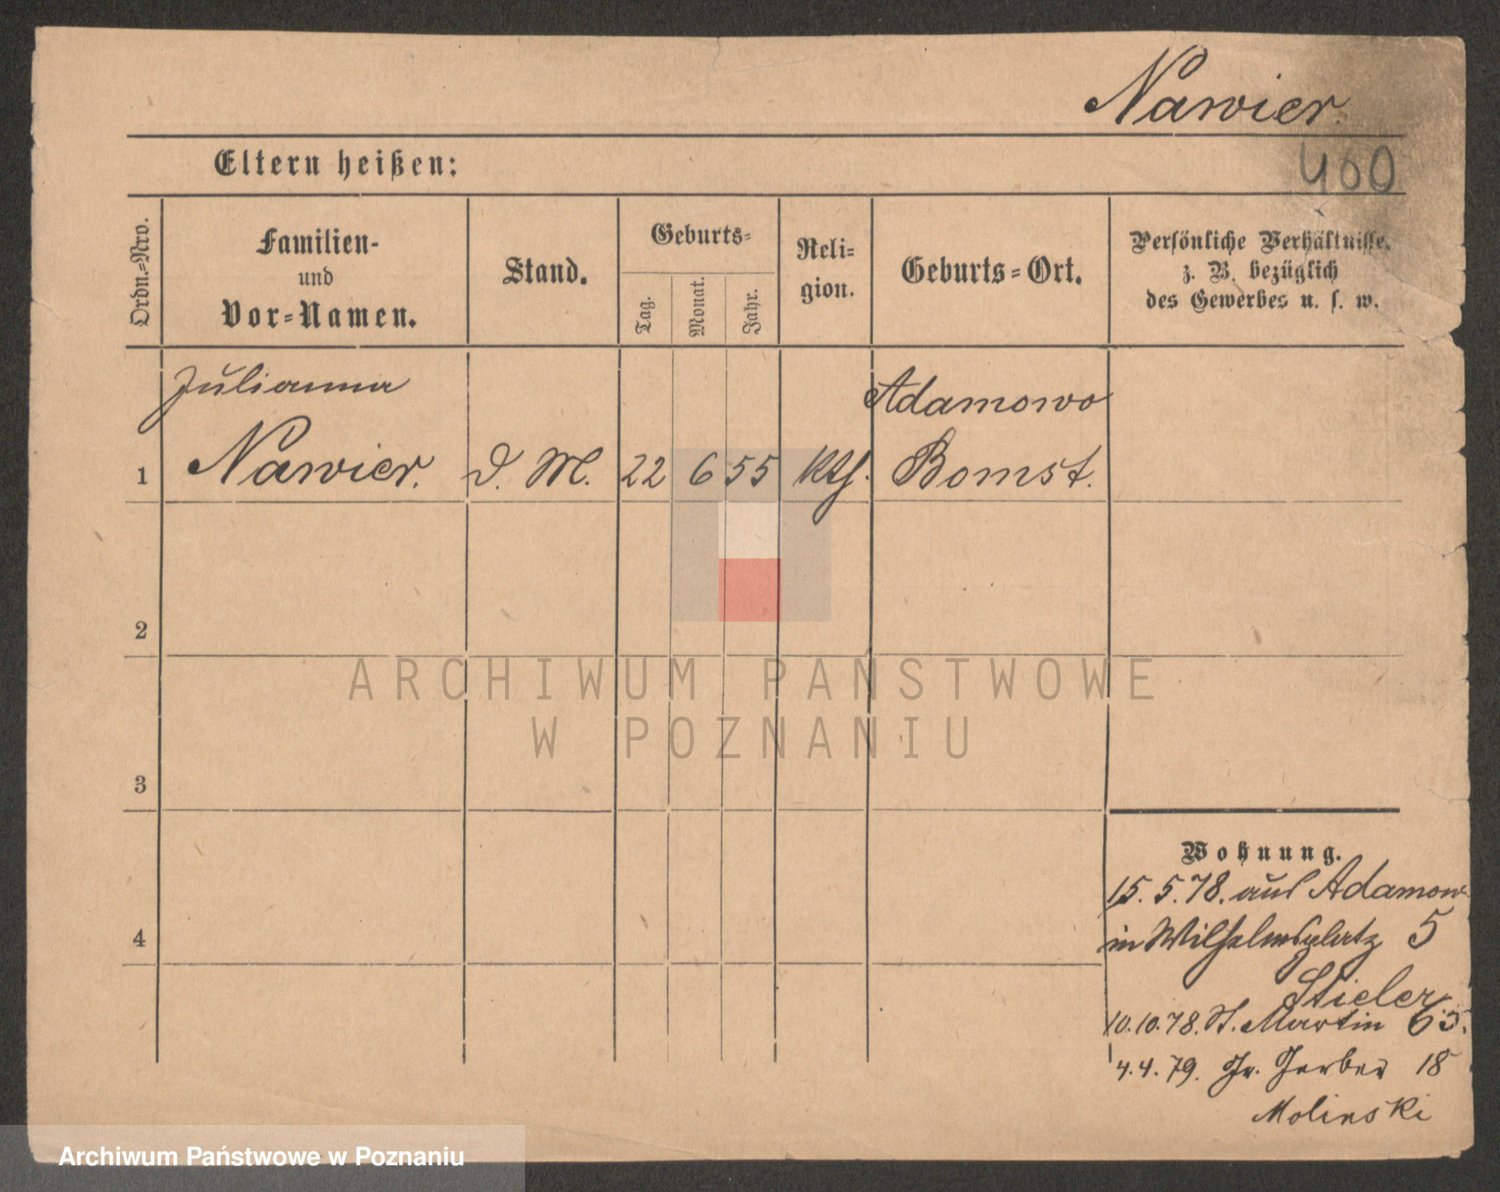 Nawier.
400
Eltern heißen:
Ordn.=Nro.
Familien-
und
Vor=Namen.
Stand.
Geburts=
Tag.
Monat.
Jahr.
Reli=
gion.
Geburts=Ort.
Persönliche Verhältnisse,
z. B. bezüglich
des Gewerbes u. s. w.
Julianna
Adamowo
1 Nawier. d. M. 22 6 55 Kth. Bomst.
2
ARCHIWUM PAŃSTWOWE
W POZNANIU
3
Wohnung.
15.5.78. aus Adamow
4
in Wilhelmsplatz 5
Stieler
10.10.78. St. Martin 65.
4.4.79. Gr. Gerber 18
Molinski
Archiwum Państwowe w Poznaniu